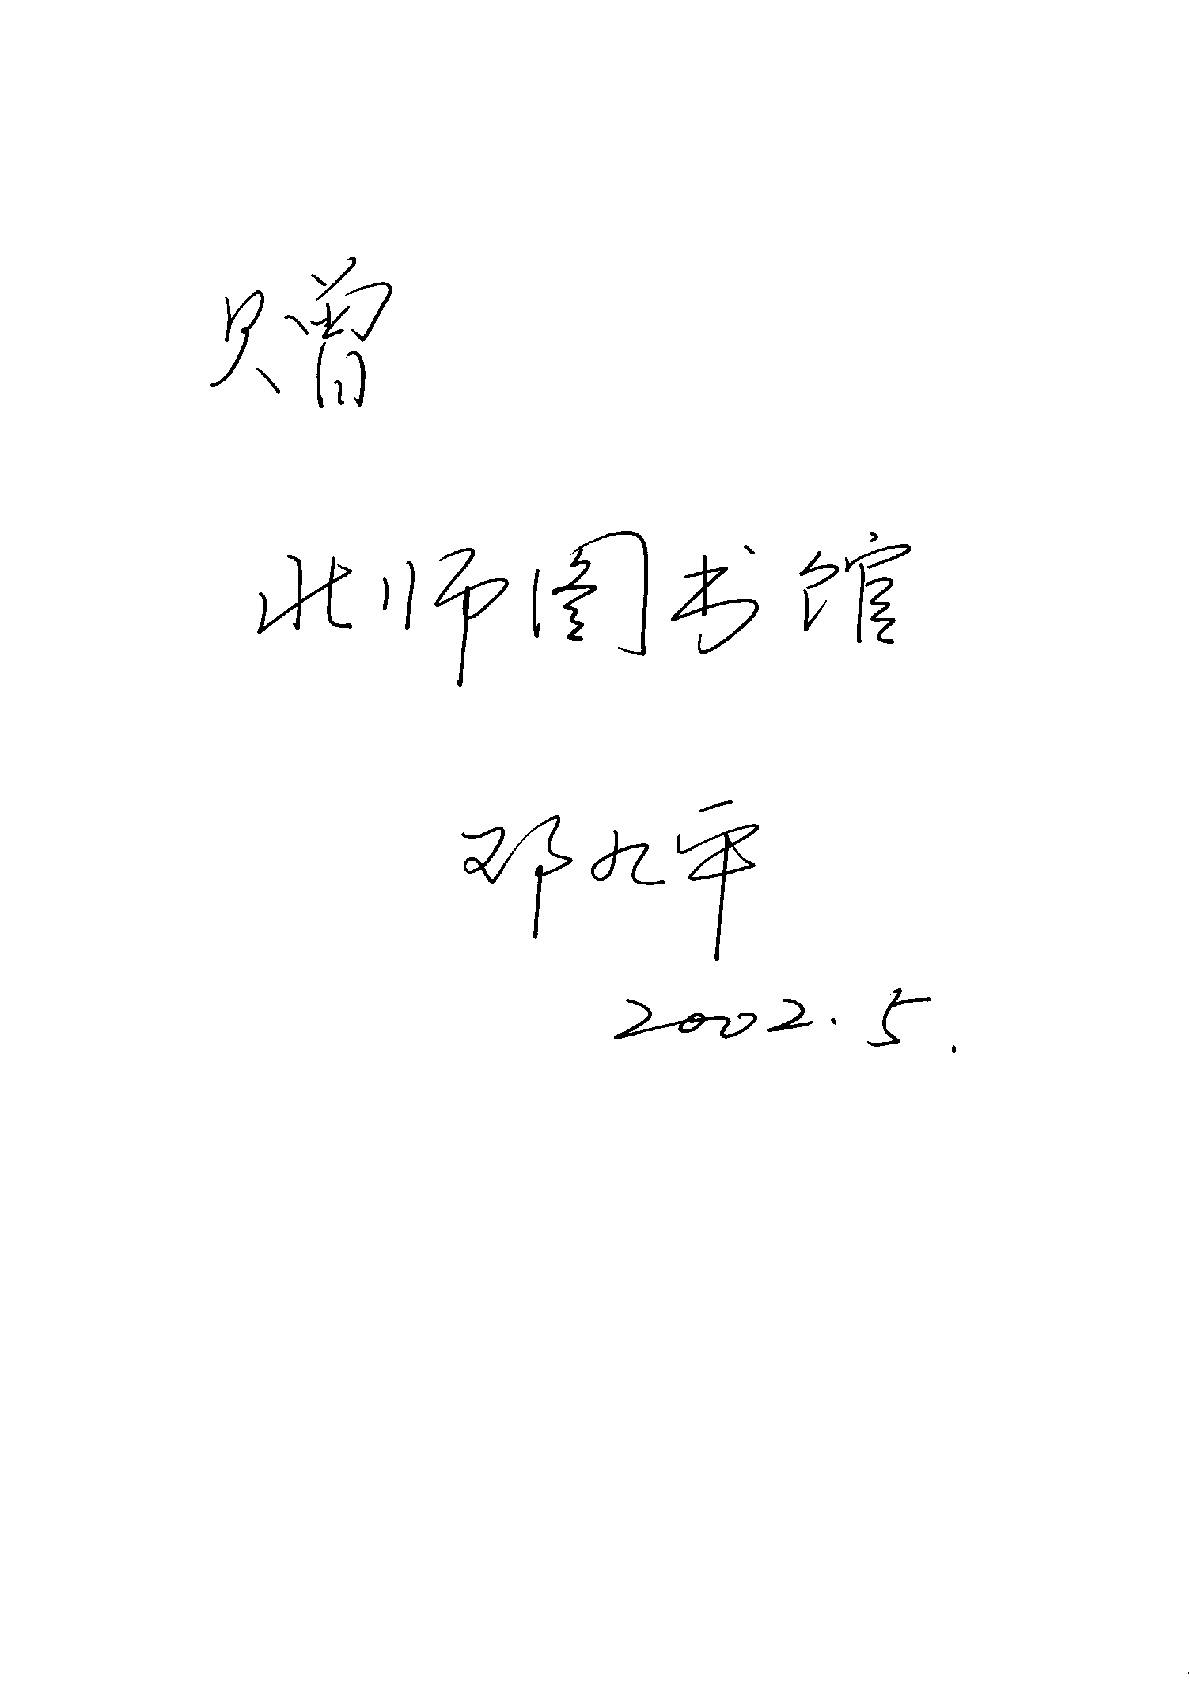 赠
北师图书馆
邓九平
2002.5.